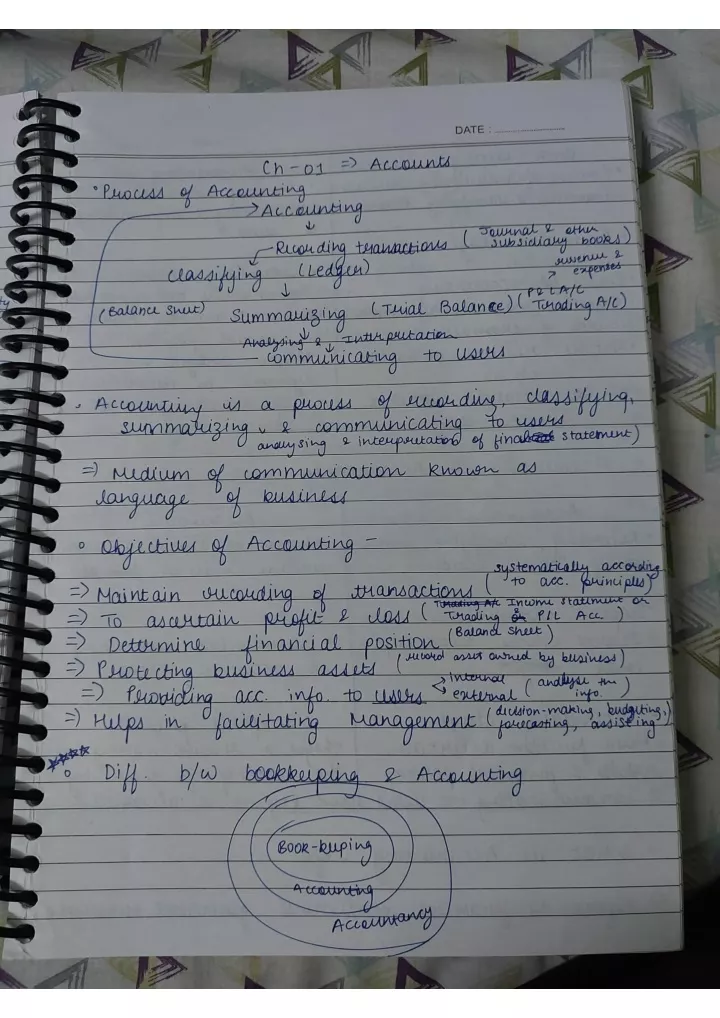 DATE :
Ch-01 => Accounts
• Process of Accounting
Accounting
Recording transactions ( Journal & other
subsidiary books)
Classifying (Ledger)
revenue &
> expenses
(Balance Sheet) Summarizing (Trial Balance) ( P&L A/C
Trading A/C)
Analysing & Interpretation
Communicating to users
• Accounting is a process of recording, classifying,
summarizing, & communicating to users
analysing & interpretation of final statement)
=> Medium of communication known as
language of business
• Objectives of Accounting –
=> Maintain recording of transactions ( systematically according
to acc. principles)
=> To ascertain profit & loss ( Trading A/c Income statement or
Trading & P/L Acc. )
=> Determine financial position (Baland Sheet)
=> Protecting business assets (record asset owned by business)
=> Providing acc. info. to users < internal
external ( analyse the
info. )
=> Helps in facilitating Management (decision-making, budgeting,
forecasting, assisting)
• Diff. b/w bookkeeping & Accounting
Book-keeping
Accounting
Accountancy